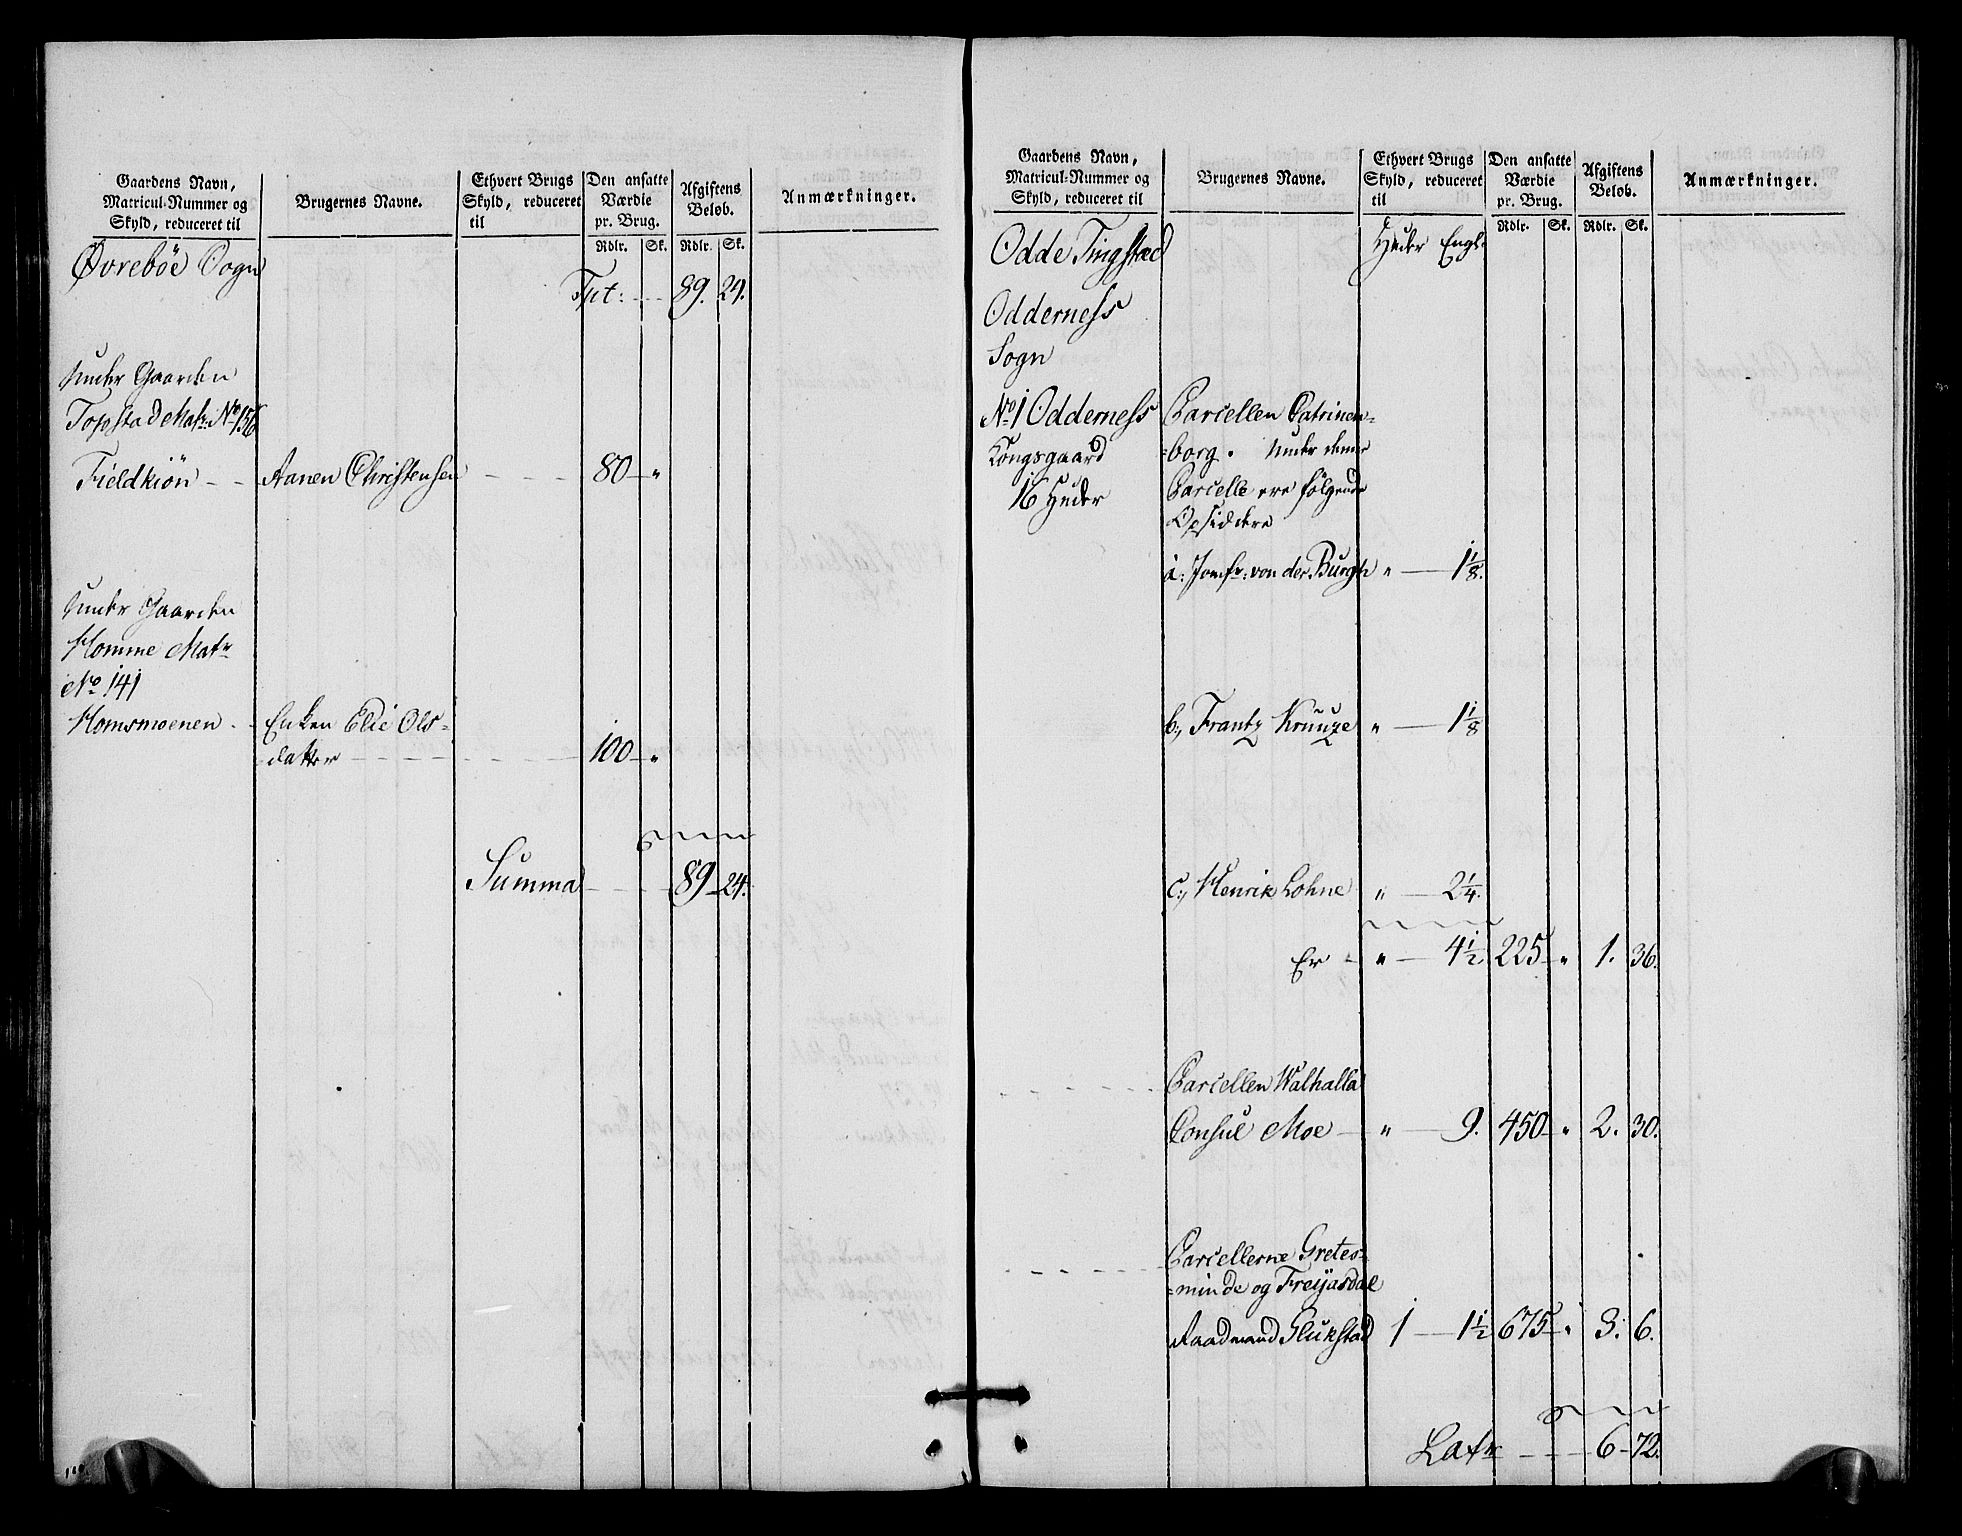 Gaardens Navn,
Matricul-Nummer og
Skyld, reduceret til
Brugernes Navne.
Ethvert Brugs
Skyld, reduceret
til
Den ansatte
Værdie
pr. Brug.
Rdlr. Sk.
Afgiftens
Beløb.
Rdlr. Sk.
Anmærkninger.
Øvrebøe Sogn
Tpt: 89. 24.
Under Gaarden
Topstad Matr: No 156
Fieldkiøn - - Aanen Christensen - - - 80 - "
Under Gaarden
Homme Matr
No 141
Homsmoenen - Enken Elie Ols-
datter - - - 100 - "
Summa - - - 89 - 24.
Gaardens Navn,
Matricul-Nummer og
Skyld, reduceret til
Brugernes Navne.
Ethvert Brugs
Skyld, reduceret
til
Den ansatte
Værdie
pr. Brug.
Rdlr. Sk.
Afgiftens
Beløb.
Rdlr. Sk.
Anmærkninger.
Odde Tingsted
Huder Engl.
Odderness
Sogn
No 1 Odderness
Kongsgaard
16 Huder
Parcellen Catrinen-
=borg. Under denne
Parcelle ere følgende
Opsiddere
a: Jomfr: von der Burgh " — 1 1/8.
b, Frantz Kruuze " — 1 1/8
c, Henrik Lohne " — 2 1/4.
Er - " — 4 1/2 225 - " 1. 36.
Parcellen Walhalla
Consul Moe — " — 9. 450 - " 2. 30.
Parcellerne Gretes-
=minde og Freyasdal
Raadmand Glukstad 1 — 1 1/2 675 - " 3. 6.
Latr - - - 6 - 72.